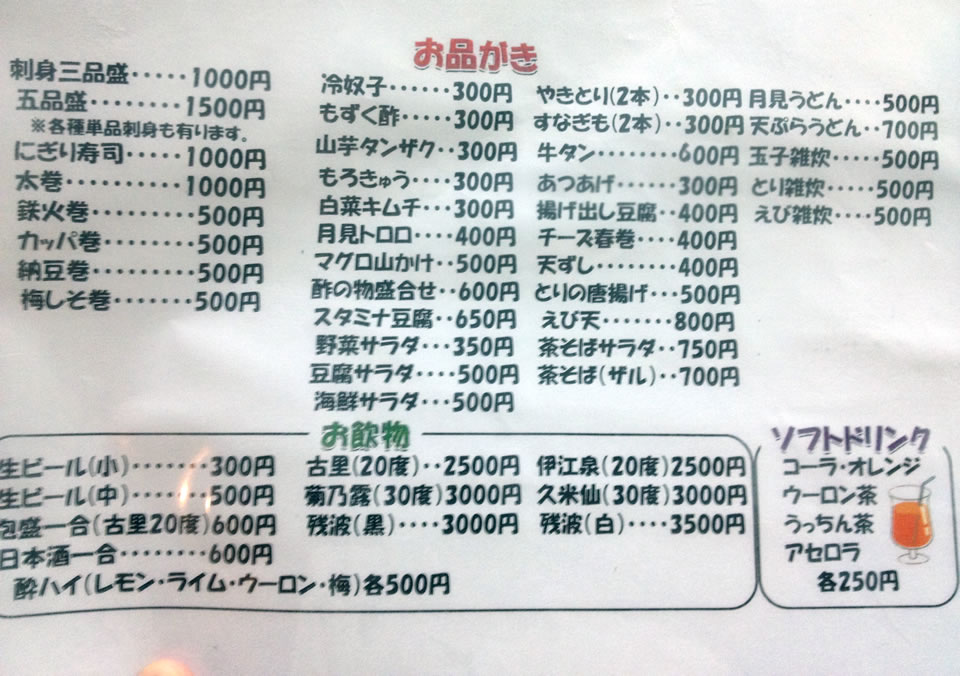 お品がき
刺身三品盛・・・・・1000円
五品盛・・・・・・・・1500円
※各種単品刺身も有ります。
にぎり寿司・・・・・1000円
太巻・・・・・・・・・・1000円
鉄火巻・・・・・・・・・500円
カッパ巻・・・・・・・・500円
納豆巻・・・・・・・・・500円
梅しそ巻・・・・・・・500円
冷奴子・・・・・・300円
もずく酢・・・・・300円
山芋タンザク・・300円
もろきゅう・・・・300円
白菜キムチ・・・300円
月見トロロ・・・・400円
マグロ山かけ・・500円
酢の物盛合せ・・600円
スタミナ豆腐・・650円
野菜サラダ・・・350円
豆腐サラダ・・・・500円
海鮮サラダ・・・500円
やきとり(2本)・・300円
すなぎも(2本)・・300円
牛タン・・・・・・・・600円
あつあげ・・・・・・300円
揚げ出し豆腐・・400円
チーズ春巻・・・・400円
天ずし・・・・・・・・400円
とりの唐揚げ・・・500円
えび天・・・・・・・800円
茶そばサラダ・・750円
茶そば(ザル)・・700円
月見うどん・・・・500円
天ぷらうどん・・700円
玉子雑炊・・・・・500円
とり雑炊・・・・・500円
えび雑炊・・・・500円
お飲物
生ビール(小)・・・・・・・300円
生ビール(中)・・・・・・・500円
泡盛一合(古里20度)600円
日本酒一合・・・・・・・・600円
酎ハイ(レモン・ライム・ウーロン・梅)各500円
古里(20度)・・2500円
菊乃露(30度)3000円
残波(黒)・・・・3000円
伊江泉(20度)2500円
久米仙(30度)3000円
残波(白)・・・・3500円
ソフトドリンク
コーラ・オレンジ
ウーロン茶
うっちん茶
アセロラ
各250円